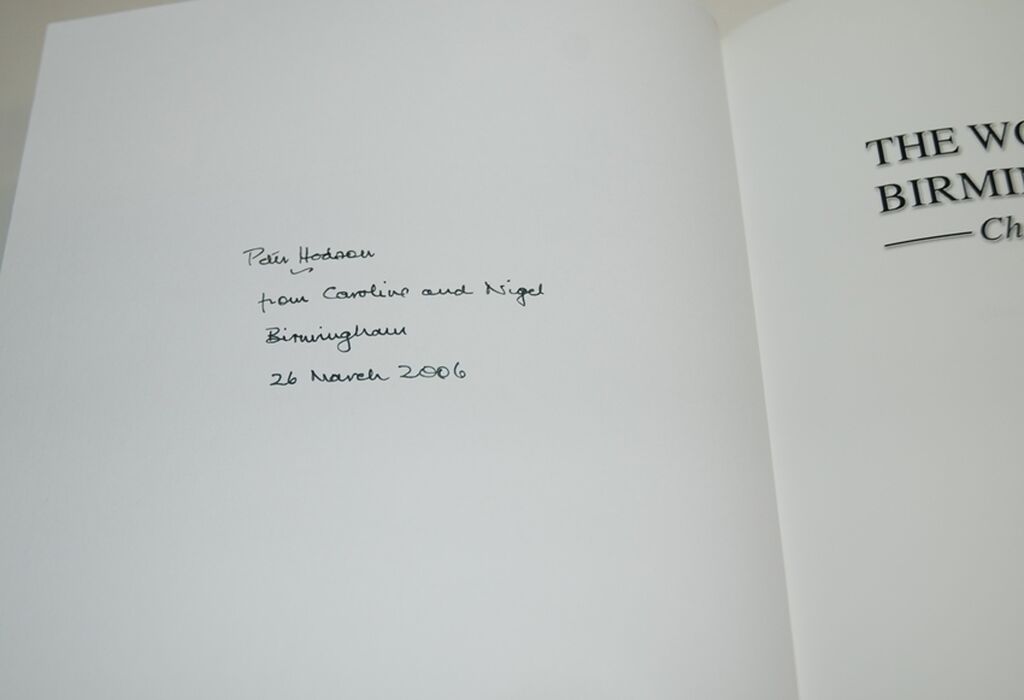 Peter Hodson
from Caroline and Nigel
Birmingham
26 March 2006
THE WO
BIRMIN
Ch